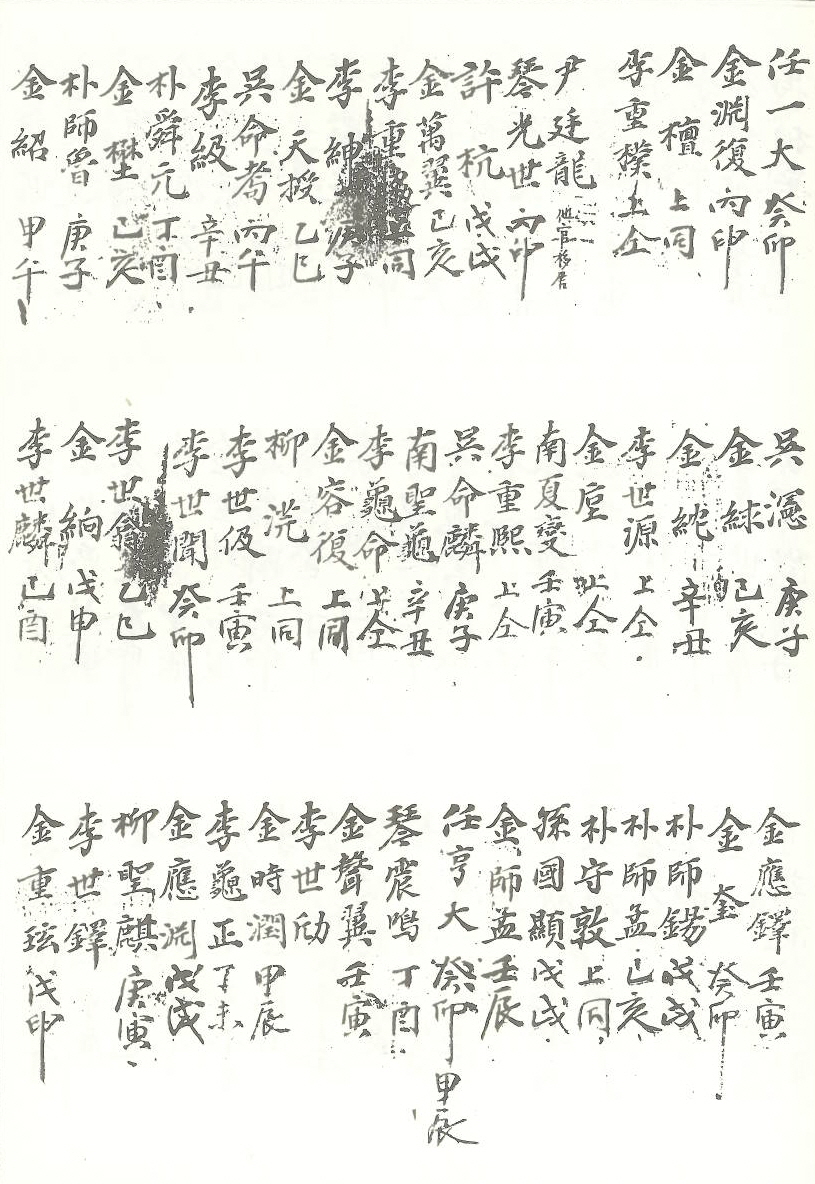 任一大 癸卯
金淵復 丙申
金檀 上同
李重樸 上仝
尹廷龍 他官移居
琴光世 丙申
許杭 戊戌
金萬翼 己亥
李重 上同
李紳 庚子
金天授 乙巳
吳命耇 丙午
李級 辛丑
朴舜元 丁酉
金埜 己亥
朴師曾 庚子
金紹 甲午
吳濾 庚子
金絿 己亥
金紽 辛丑
李世源 上仝
金 上仝
南夏變 壬寅
李重熙 上仝
吳命麟 庚子
南聖龜 辛丑
李龜命 上仝
金容復 上同
柳浣 上同
李世伋 壬寅
李世聞 癸卯
李世翕 乙巳
金絅 戊申
李世麟 己酉
金應鐸 壬寅
金 癸卯
朴師錫 戊戌
朴師孟 己亥
朴守敦 上同
孫國顯 戊戌
金師孟 壬辰
任亨大 癸卯 甲辰
琴震鳴 丁酉
金聲翼 壬寅
李世
金時潤 甲辰
李龜正 丁未
金應洌 戊戌
柳聖麒 庚寅
李世鐸
金重玹 戊申